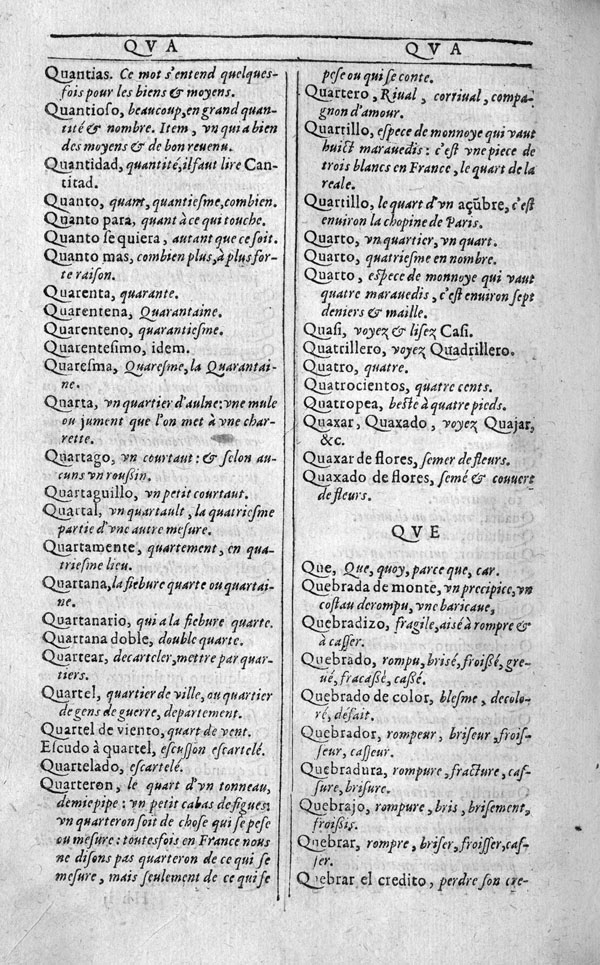 QVA
QVA
Quantias. Ce mot s'entend quelques-
fois pour les biens & moyens.
Quantioſo, beaucoup, en grand quan-
tité & nombre. Item, vn qui a bien
des moyens & de bon reuenu.
Quantidad, quantité, il faut lire Can-
titad.
Quanto, quant, quantieſme, combien.
Quanto para, quant à ce qui touche.
Quanto ſe quiera, autant que ce ſoit.
Quanto mas, combien plus, à plus for-
te raiſon.
Quarenta, quarante.
Quarentena, Quarantaine.
Quarenteno, quarantieſme.
Quarenteſimo, idem.
Quareſma, Quareſme, la Quarantai-
ne.
Quarta, vn quartier d'aulne: vne mule
ou jument que l'on met à vne char-
rette.
Quartago, vn courtaut: & ſelon au-
cuns vn rouſſin.
Quartaguillo, vn petit courtaut.
Quartal, vn quartault, la quatrieſme
partie d'vne autre meſure.
Quartamente, quartement, en qua-
trieſme lieu.
Quartana, la fiebure quarte ou quartai-
ne.
Quartanario, qui a la fiebure quarte.
Quartana doble, double quarte.
Quartear, decarteler, mettre par quar-
tiers.
Quartel, quartier de ville, ou quartier
de gens de guerre, departement.
Quartel de viento, quart de vent.
Eſcudo à quartel, eſcuſſon eſcartelé.
Quartelado, eſcartelé.
Quarteron, le quart d'vn tonneau,
demie pipe: vn petit cabas de figues:
vn quarteron ſoit de choſe qui ſe peſe
ou meſure: toutesfois en France nous
ne diſons pas quarteron de ce qui ſe
meſure, mais ſeulement de ce qui ſe
peſe ou qui ſe conte.
Quartero, Riual, corriual, compa-
gnon d'amour.
Quartillo, eſpece de monnoye qui vaut
huict marauedis: c'eſt vne piece de
trois blancs en France, le quart de la
reale.
Quartillo, le quart d'vn açũbre, c'eſt
enuiron la chopine de Paris.
Quarto, vn quartier, vn quart.
Quarto, quatrieſme en nombre.
Quarto, eſpece de monnoye qui vaut
quatre marauedis, c'eſt enuiron ſept
deniers & maille.
Quaſi, voyez & liſez Caſi.
Quatrillero, voyez Quadrillero.
Quatro, quatre.
Quatrocientos, quatre cents.
Quatropea, beſte à quatre pieds.
Quaxar, Quaxado, voyez Quajar,
&c.
Quaxar de flores, ſemer de fleurs.
Quaxado de flores, ſemé & couuert
de fleurs.
QVE
Que, Que, quoy, parce que, car.
Quebrada de monte, vn precipice, vn
coſtau derompu, vne baricaue,
Quebradizo, fragile, aisé à rompre &
à caſſer.
Quebrado, rompu, briſé, froißé, gre-
ué, fracaßé, caßé.
Quebrado de color, bleſme, decolo-
ré, défait.
Quebrador, rompeur, briſeur, froiſ-
ſeur, caſſeur.
Quebradura, rompure, fracture, caſ-
ſure, briſure.
Quebrajo, rompure, bris, briſement,
froiſſis.
Quebrar, rompre, briſer, froiſſer, caſ-
ſer.
Quebrar el credito, perdre ſon cre-